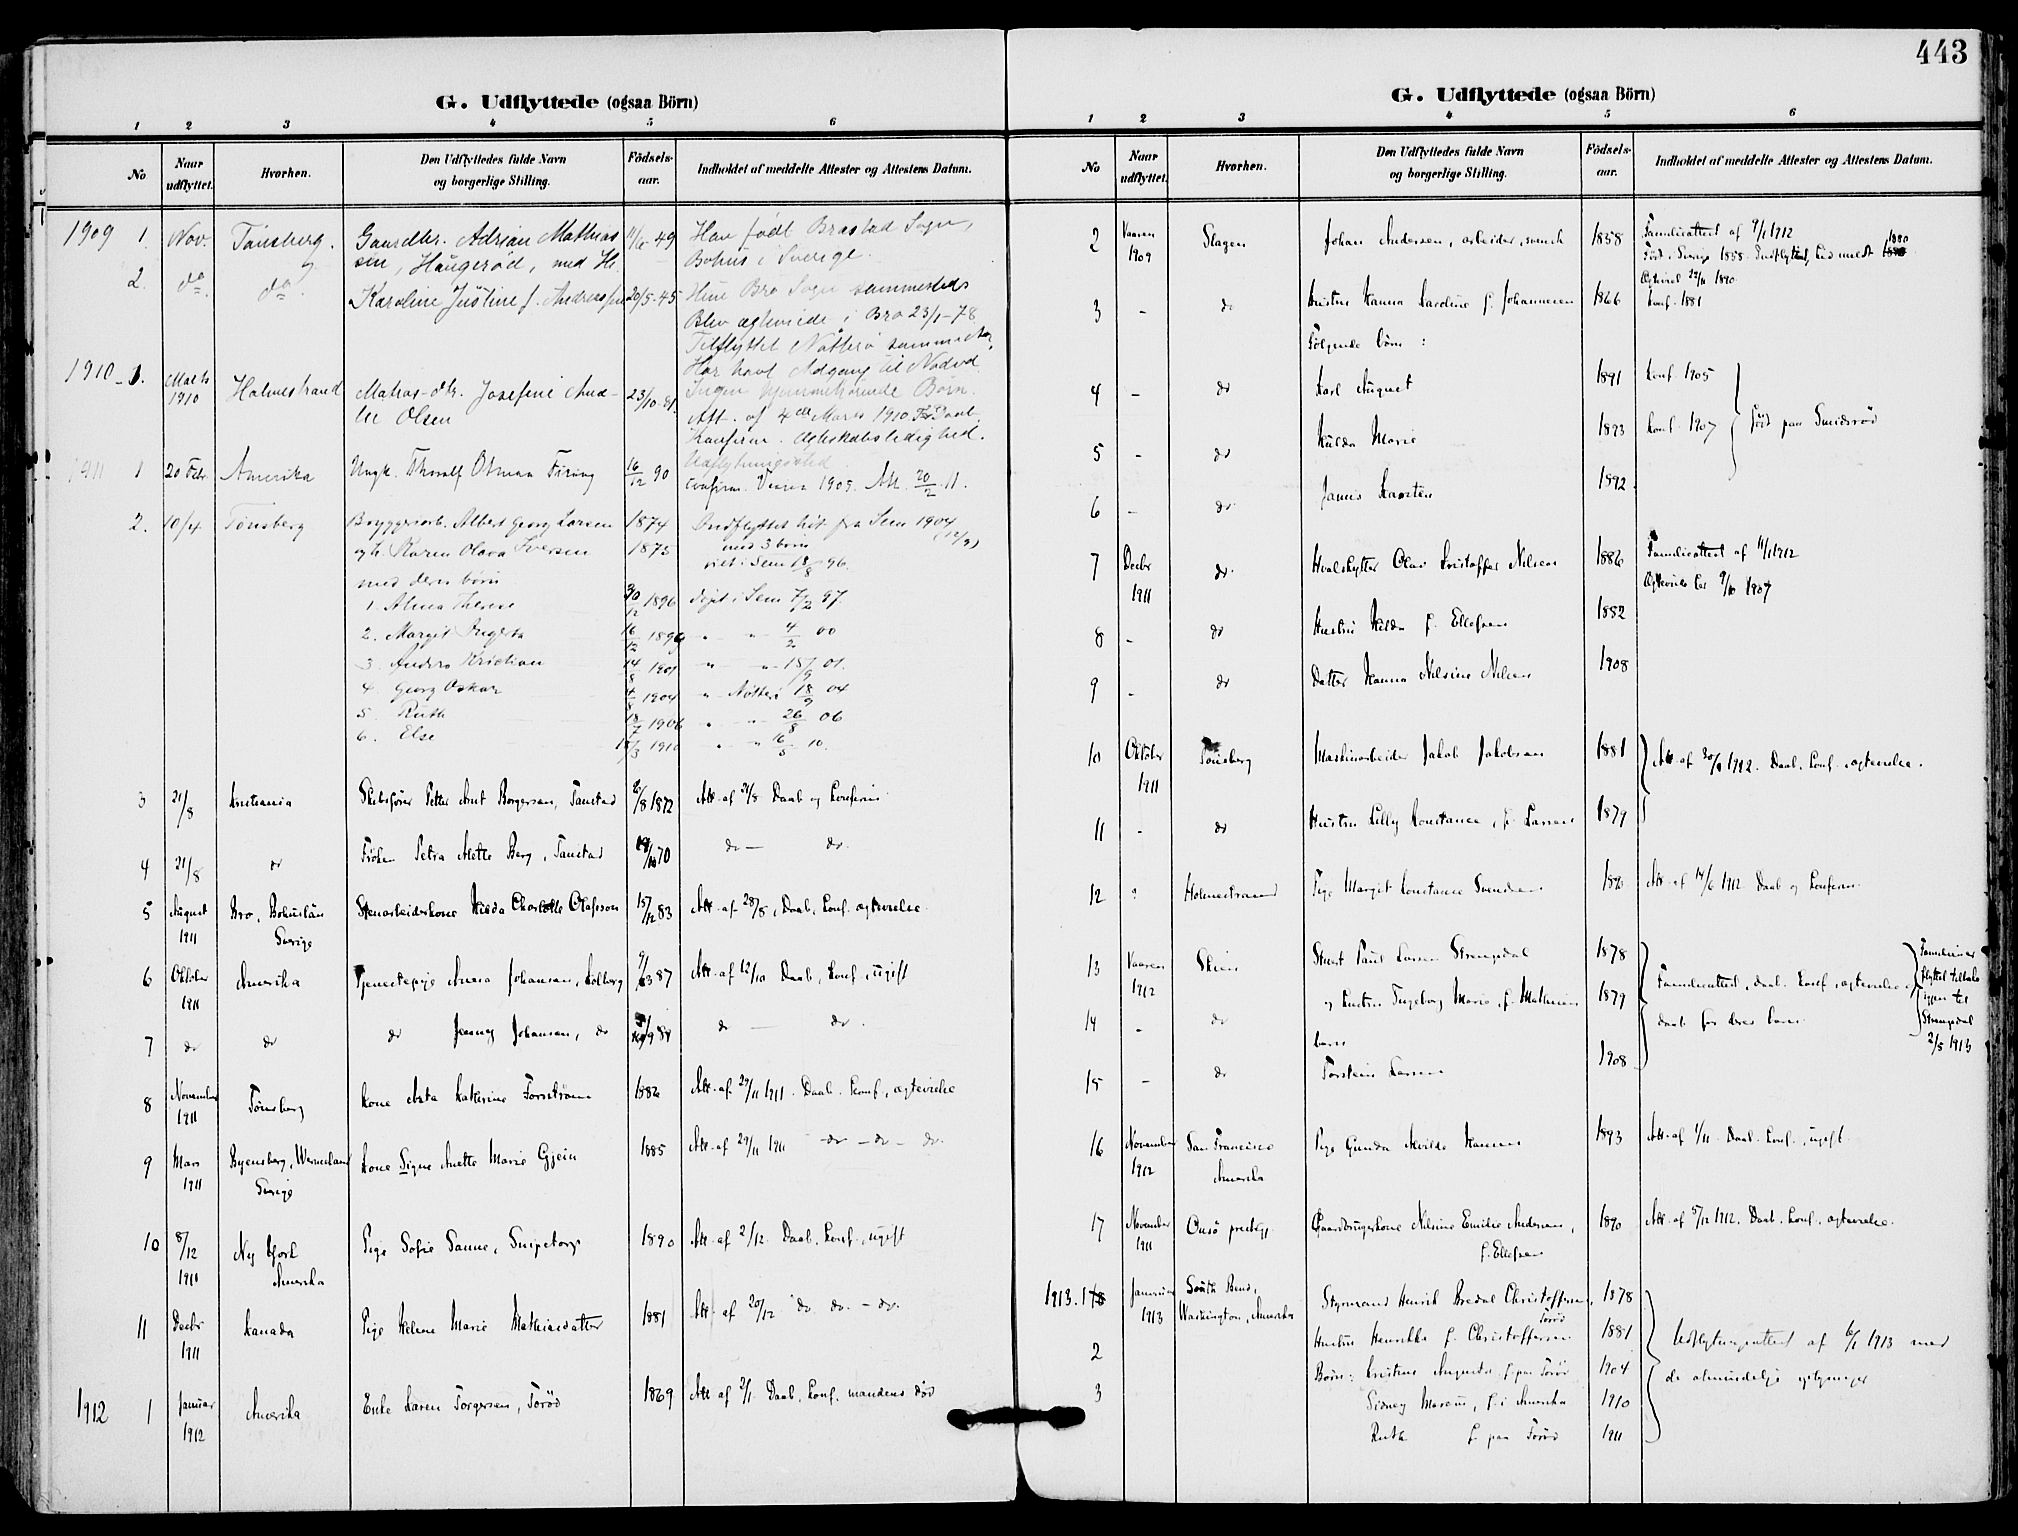 443
G. Udflyttede (ogsaa Börn)
1 2 3 4 5 6
No
Naar udflyttet.
Hvorhen.
Den Udflyttedes fulde Navn og borgerlige Stilling.
Födsels-aar.
Indholdet af meddelte Attester og Attestens Datum.
1909 1. Nov. Tønsberg. Gaardbr. Adrian Mathias 49 Han født Brastad Sogn,
sen, Haugerød, med H. Bohus i Sverige.
2. do do Karoline Justine f. Andreassen 20/5-45 Hun Bro Sogn sammesteds
Blev ægteviede i Bro 23/1-78
Tilflyttet Nøtterø samme
Har havt Adgang til Nadvd.
1910 - 1. Marts 1910 Holmestrand Matros-dtr. Josefine Ama- 23/10-81. Ingen hjemmehørende Børn.
lie Olsen Att. af 4de Mars 1910 Daab
Konfirm. Ægteskabsledighed.
1911 1 20 Febr. Amerika Ungk. Thoralf Otman Føring 16/12 90 Udflytningsattest
Confirm. Vaaren 1905. Att. 20/2 11.
2. 10/4 Tønsberg Bryggeriarb. Albert Georg Larsen 1874 Indflyttet hit fra Sem 1904
og h. Karen Olava Iversen 1875 med 3 børn (12/9)
med deres børn viet i Sem 18/8 96.
1. Alma Therese 30/12 1896 døpt i Sem 7/2 97.
2. Margit Ingerta 16/12 1899 " " 4/2 00
3. Anders Kristian 14/8 1901 " " 15/9 01.
4. Georg Oskar 4/8 1904 " Nøtterø 18/9 04
5. Ruth 18/7 1906 " " 26/8 06
6. Else 18/3 1910 " " 16/5 10.
3 21/8 Kristiania Skibsfører Petter Amt Borgersen, Tanstad /8 1872 Att. af 21/8 Daab og Konfirm.
4 21/8 do Frøken Petra Alette Berg, Tanstad /10 70 do — do.
5 August 1911 Bro, Bohuslän Sverige Stenarbeiderkone Hilda Charlotte Olafsson 15/12 83 Att. af 28/8, Daab, Konf. ægtevielse.
6 Oktober 1911 Amerika Tjenestepige Anna Johansen, Kolberg 9/3 87 Att. af 12/10 Daab, Konf., ugift
7 do do do Jenny Johansen, do /9 84 do — do.
8 November 1911 Tønsberg Kone Asta Katherine Forsstrøm 1886 Att. af 29/11 1911. Daab. Konf., ægtevielse
9 Mars 1911 Byensberg, Wermeland Sverige Kone Signe Anette Marie Gjein 1885 Att. af 29/11 1911 do – do – do.
10 8/12 1911 New York Amerika Pige Sofie Sanne, Snipetorp 1890 Att. af 2/12. Daab. Konf., ugift
11 Decbr 1911 Kanada Pige Helene Marie Mathiasdatter 1881 Att. af 20/12 do. do. – do.
1912 1 Januar 1912 Amerika Enke Karen Torgersen, Torød 1869 Att. af 2/1. Daab. Konf. mandens død
G. Udflyttede (ogsaa Börn)
1 2 3 4 5 6
No
Naar udflyttet.
Hvorhen.
Den Udflyttedes fulde Navn og borgerlige Stilling.
Födsels-aar.
Indholdet af meddelte Attester og Attestens Datum.
2 Vaaren 1909 Slagen Johan Andersen, arbeider, svensk 1858 Familieattest af 9/1 1912
Født i Sverige 1858. Indflyttet, Udmeldt 1880
Ægteviet 29/11 1890
3 - do Hustru Hanna Karoline f. Johannesen 1866 Konf. 1881
Følgende børn:
4 - do Karl August 1891 Konf. 1905
5 - do Hulda Marie 1893 Konf. 1907 født paa Smidsrød
6 - do James Karsten 1892
7 Decbr 1911 do Hvalskytter Olav Kristoffer Nilsen 1886 Familieattest af 11/1 1912
Ægteviede 9/10 1907
8 - do Hustru Hilda f. Ellefsen 1882
9 - do Datter Hanna Nilsine Nilsen 1908
10 Oktober 1911 Tønsberg Maskinarbeider Jakob Jakobsen 1881 Att. af 30/ 1912. Daab. Konf. ægtevielse.
11 - do Hustru Lilly Konstance, f. Larsen 1879
12 ? Holmestrand Pige Margit Konstance Svendsen 1890 Att. af 14/6 1912 Daab og Konfirm.
13 Vaaren 1912 Skien Paul Larsen Strengsdal 1878 Familieattest, daab. Konf, ægtevielse.
14 - do og hustru Ingeborg Marie f. Mathisen 1879 daab for deres barn
barn
15 - do Torstein Larsen 1908
Familien er flyttet tilbake igjen til Strengsdal 2/5 1913
16 November 1912 San Francisco Amerika Pige Gunda Alvilde Hansen 1893 Att. af 1/11. Daab. Konf., ugift.
17 November 1911 Onsø prestegj. Gaardbrugerkone Nilsine Emilie Andersen, f. Ellefsen 1890 Att. af 5/12 1912. Daab. Konf. ægtevielse.
1913. 1 Januar 1913 South Bend, Washington, Amerika Styrmand Henrik Bredal Christoffersen, Torød 1878
2 Hustru Henrikke f. Christoffersen 1881 Udflytningsattest af 6/1 1913 med
3 Børn: Kristine Augusta f. paa Torød 1904 de almindelige oplysninger
Sidney Marcus, f. i Amerika 1910
Ruth f. paa Torød 1911